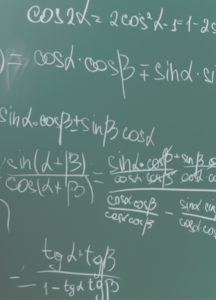 cos2α = 2cos²α-1=1-2s
) = cosα·cosβ ∓ sinα·si
sinα·cosβ ± sinβ cosα
sin(α+β) / cos(α+β) = (sinα·cosβ / cosα cosβ + sinβ / cosα) / (cosα cosβ / cosα cosβ - sinα sin / cosα cos)
= (tgα+tgβ) / (1-tgα tgβ)